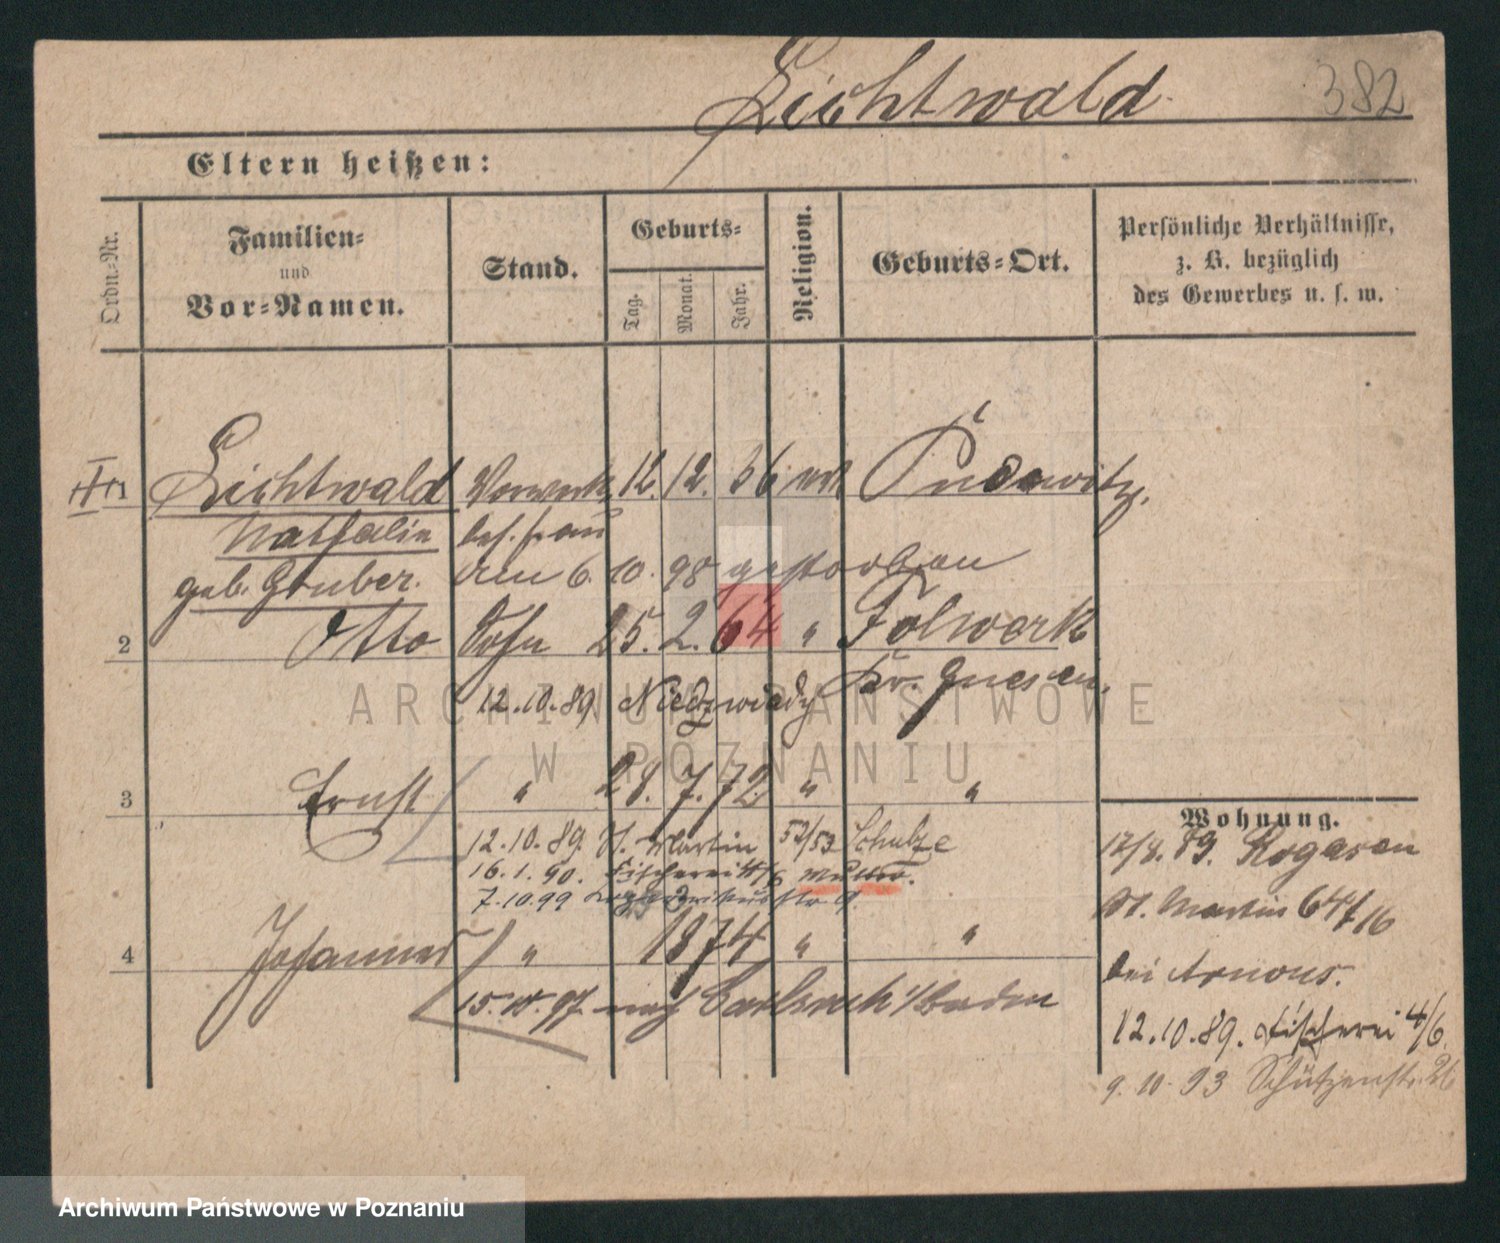 Lichtwald
382
Eltern heißen:
Ordn.-Nr.
Familien-
und
Vor-Namen.
Stand.
Geburts-
Tag.
Monat.
Jahr.
Religion.
Geburts-Ort.
Persönliche Verhältnisse,
z. B. bezüglich
des Gewerbes u. s. w.
Lichtwald Vorwerks 12. 12. 36
Nathalie bes. frau
geb. Gruber. den 6. 10. 98 gestorben
2 Otto Sohn 25. 2. 64 " Folwark
Kr. Gnesen.
12.10.89 Niedzwiady
3 Ernst " 28. 7. 72 " "
12.10.89. St. Martin 52/53 Schulze
16.1.90. Fischerei 4/6 Mutter.
7.10.99
4 Johannes " 1874 " "
15. 10. 97. nach Carlsruh i/Baden
Wohnung.
12/8. 89. Rogasen
St. Martin 64/
bei Arnous.
12.10.89. Fischerei 4/6.
9. 10. 93 Schützenstr. 26
ARCHIWUM PAŃSTWOWE
W POZNANIU
Archiwum Państwowe w Poznaniu